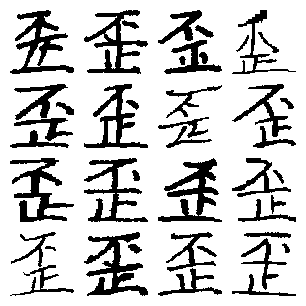 歪歪歪歪
歪歪歪歪
歪歪歪歪
歪歪歪歪